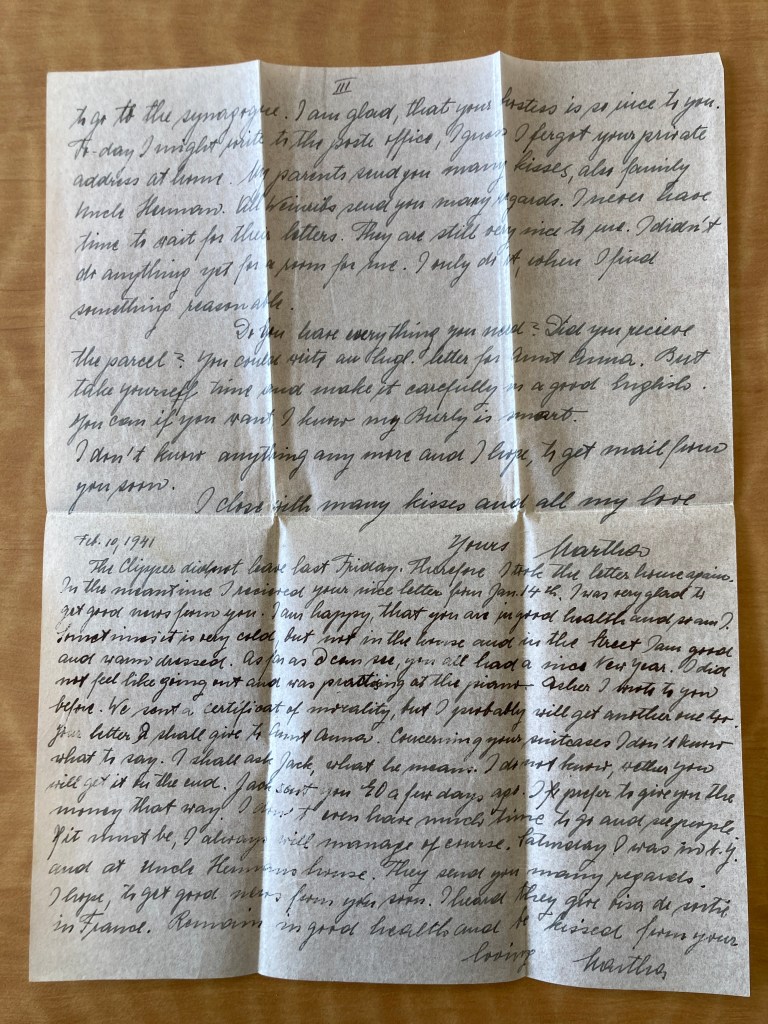 III
to go to the synagogue. I am glad, that your hostess is so nice to you.
To-day I might write to the poste office, I guess I forgot your private
address at home. My parents send you many kisses, also family
Uncle Herman. All Weinribs send you many regards. I never have
time to wait for their letters. They are still very nice to me. I didn't
do anything yet for a room for me. I only do it, when I find
something reasonable.
Do you have everything you need? Did you recieve
the parcel? You could write an Engl. letter for Aunt Anna. But
take yourself time and make it carefully in a good English.
You can if you want I know my is smart.
I don't know anything any more and I hope, to get mail from
you soon.
I close with many kisses and all my love
Yours Martha
Feb. 10, 1941
The Clipper didnot leave last Friday. Therefore I took the letter home again.
In the meantime I received your nice letter from Jan. 14th. I was very glad to
get good news from you. I am happy, that you are in good health and so am I.
Sometimes it is very cold, but not in the house and in the street I am good
and warm dressed. As far as I can see, you all had a nice New Year. I did
not feel like going out and was practising at the piano. Asher I wrote to you
before. We sent a certificat of morality, but I probably will get another one too.
Your letter I shall give to Aunt Anna. Concerning your suitcases I don't know
what to say. I shall ask Jack, what he means. I do not know, wether you
will get it in the end. Jack sent you 20 a few days ago. I prefer to give you the
money that way. I don't even have much time to go and see people.
If it must be, I always will manage of course. Saturday I was in N.Y.
and at Uncle Hermans house. They send you many regards.
I hope, to get good news from you soon. I heard they give visa de sortie
in France. Remain in good health and be kissed from your
loving Martha